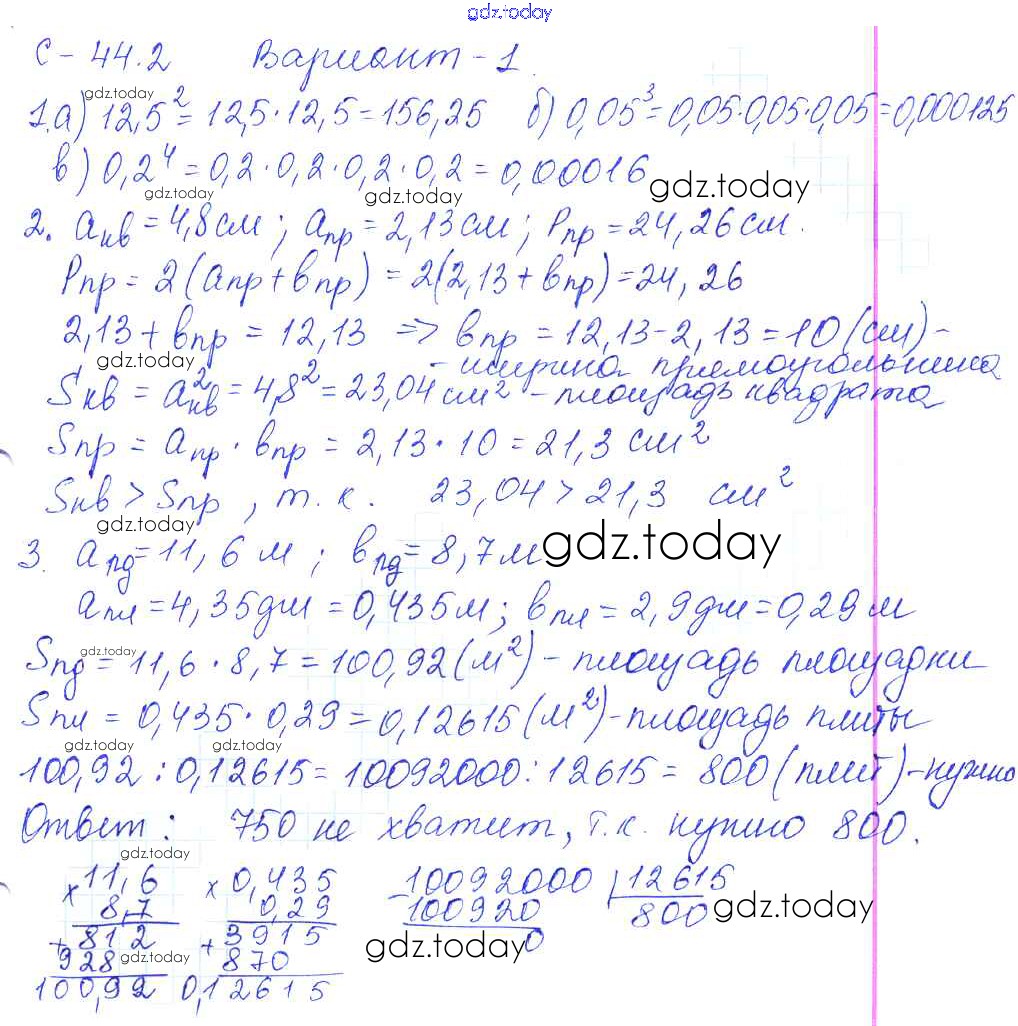 gdz.today
С-44.2 Вариант-1.
gdz.today
1.а) 12,5² = 12,5·12,5 = 156,25 б) 0,05³ = 0,05·0,05·0,05 = 0,000125
в) 0,2⁴ = 0,2·0,2·0,2·0,2 = 0,00016
gdz.today gdz.today gdz.today
2. aкв = 4,8 см; aпр = 2,13 см; Pпр = 24,26 см.
Pпр = 2(aпр + bпр) = 2(2,13 + bпр) = 24,26
2,13 + bпр = 12,13 => bпр = 12,13 - 2,13 = 10 (см) -
gdz.today
- ширина прямоугольника
Sкв = a²кв = 4,8² = 23,04 см² - площадь квадрата
Sпр = aпр · bпр = 2,13 · 10 = 21,3 см²
Sкв > Sпр, т.к. 23,04 > 21,3 см²
gdz.today
3. aпд = 11,6 м; bпд = 8,7 м
gdz.today
aпл = 4,35 дм = 0,435 м; bпл = 2,9 дм = 0,29 м
gdz.today
Sпд = 11,6 · 8,7 = 100,92 (м²) - площадь площадки
Sпл = 0,435 · 0,29 = 0,12615 (м²) - площадь плиты
gdz.today gdz.today gdz.today
100,92 : 0,12615 = 10092000 : 12615 = 800 (плит) - нужно
Ответ: 750 не хватит, т.к. нужно 800.
gdz.today
× 11,6 × 0,435 - 10092000 | 12615
8,7 0,29 100920 800
gdz.today
+ 812 + 3915 0
gdz.today
928 870
gdz.today
100,92 0,12615